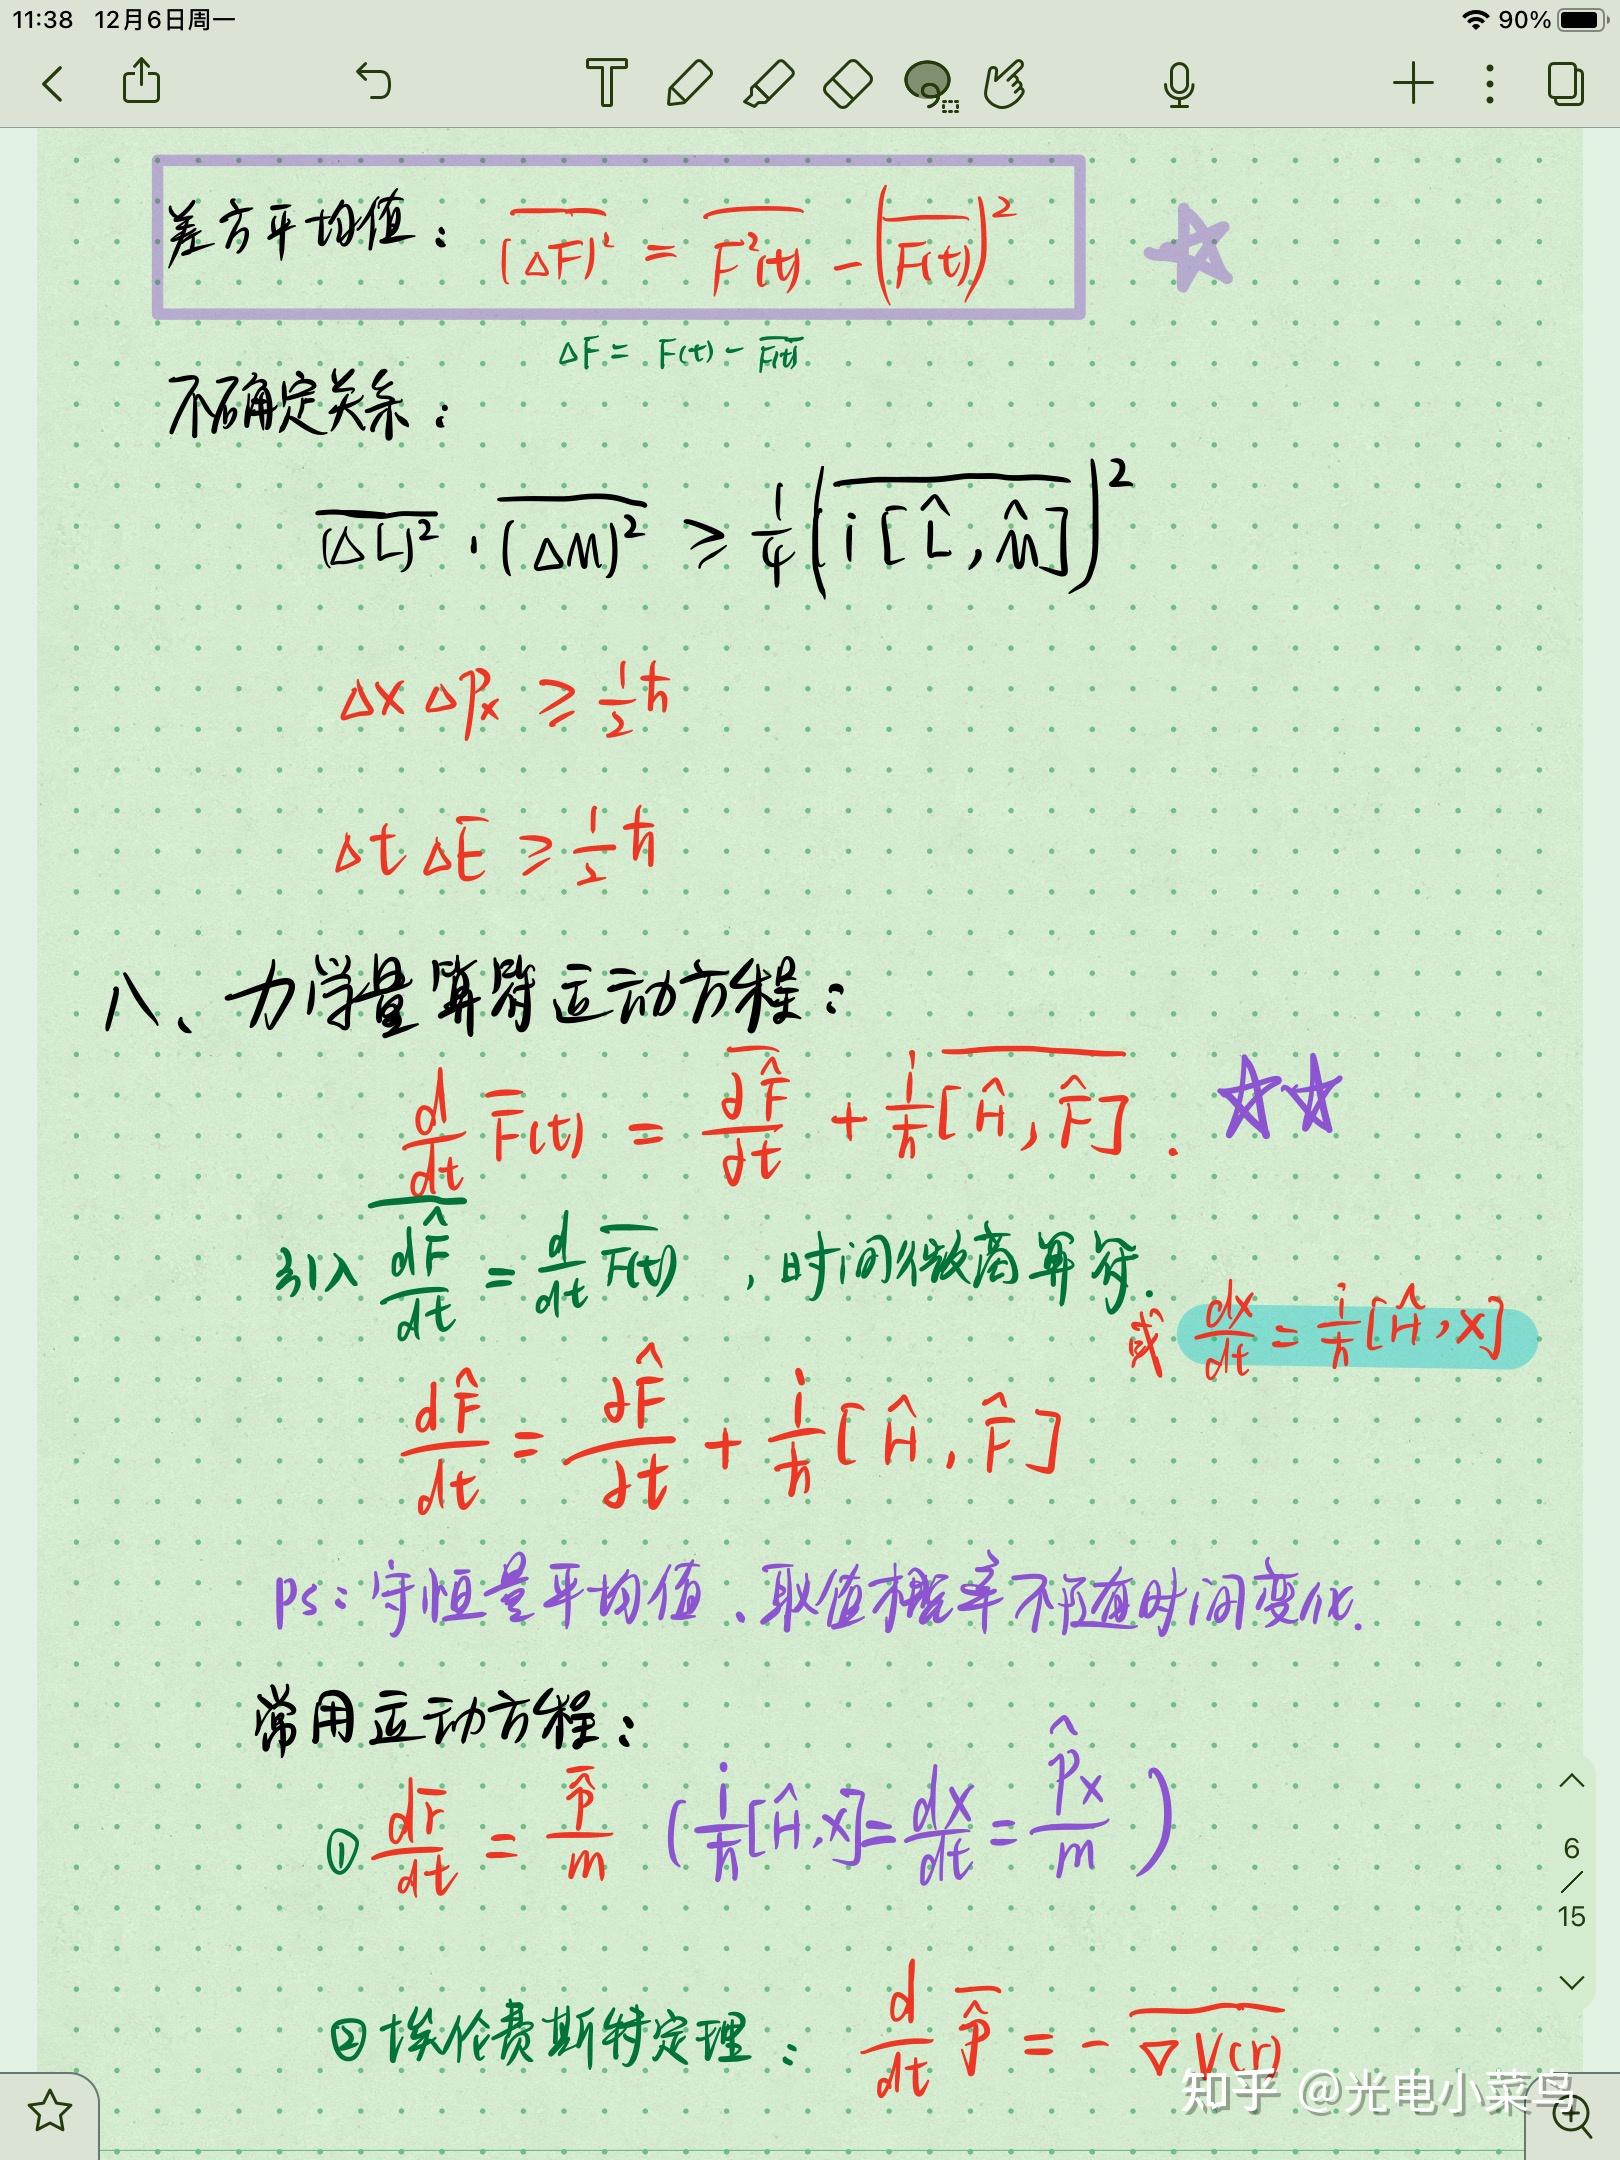 11:38 12月6日周一 90%
差方平均值: \overline{(ΔF)^2} = \overline{F^2(t)} - (\overline{F(t)})^2
ΔF = F(t) - \overline{F(t)}
不确定关系:
\overline{(ΔL)^2} · \overline{(ΔM)^2} ≥ \frac{1}{4} (\overline{i[\hat{L}, \hat{M}]})^2
Δx Δp_x ≥ \frac{1}{2} ħ
Δt ΔE ≥ \frac{1}{2} ħ
八、力学量算符运动方程:
\frac{d}{dt} \overline{F}(t) = \overline{\frac{∂\hat{F}}{∂t}} + \frac{i}{ħ} \overline{[\hat{H}, \hat{F}]}.
引入 \overline{\frac{d\hat{F}}{dt}} = \frac{d}{dt} \overline{F(t)}, 时间微商算符.
或 \frac{dx}{dt} = \frac{i}{ħ} [\hat{H}, x]
\frac{d\hat{F}}{dt} = \frac{∂\hat{F}}{∂t} + \frac{i}{ħ} [\hat{H}, \hat{F}]
ps: 守恒量平均值、取值概率不随时间变化.
常用运动方程:
① \frac{d\overline{r}}{dt} = \frac{\overline{\hat{p}}}{m} (\frac{i}{ħ}[\hat{H}, x] = \frac{dx}{dt} = \frac{\hat{p}_x}{m})
6
/
15
② 埃伦费斯特定理: \frac{d}{dt} \overline{\hat{p}} = - \overline{∇V(r)}
知乎 @光电小菜鸟